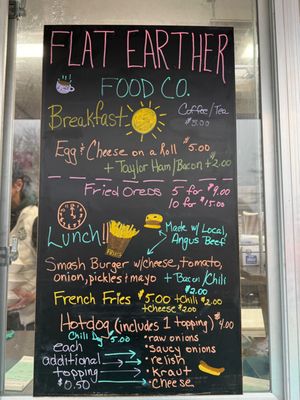 FLAT EARTHER
FOOD CO.
Breakfast
Coffee/Tea
$3.00
Egg & Cheese on a Roll $5.00
+ Taylor Ham/Bacon +$2.00
Fried Oreos 5 for $9.00
10 for $15.00
Lunch!!
Made w/ Local,
Angus Beef
Smash Burger w/cheese, tomato,
onion, pickles + mayo + Bacon/Chili
$2.00
French Fries $5.00 +Chili $2.00
+Cheese $2.00
Hotdog (includes 1 topping) $4.00
Chili Dog $5.00
each
additional
topping
$0.50
• raw onions
• saucy onions
• relish
• kraut
• cheese